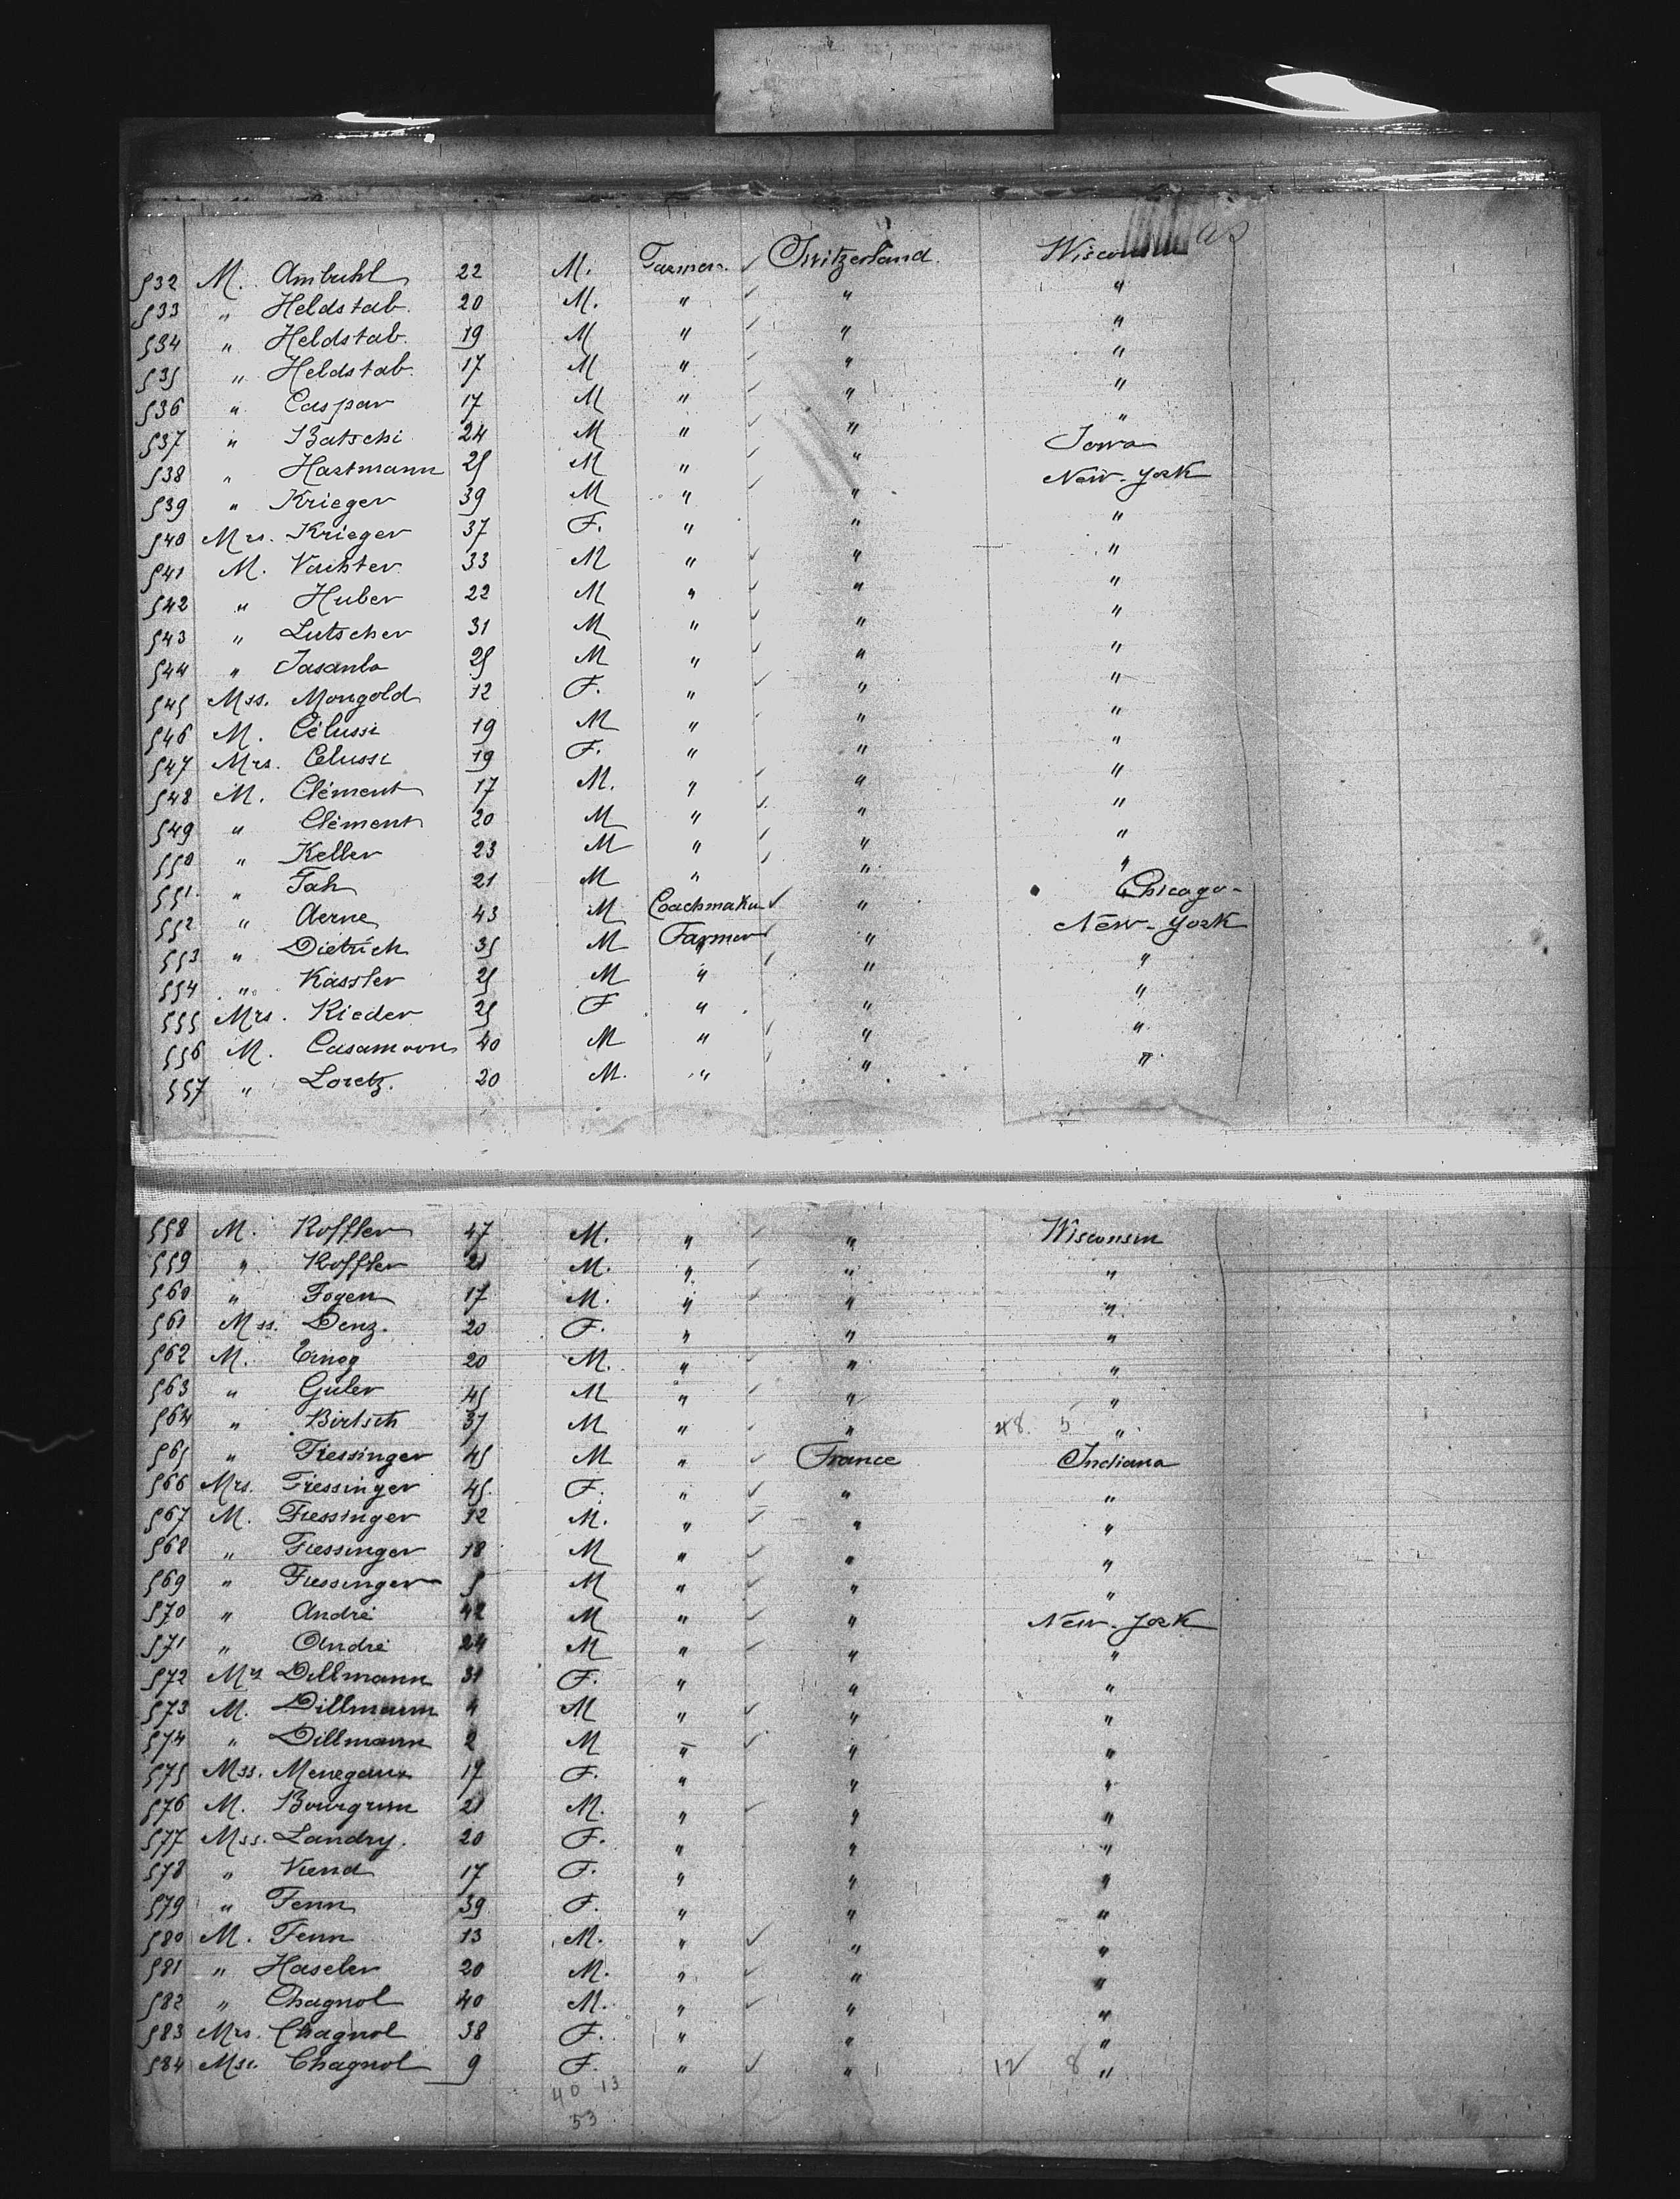 as
532 M. Ambuhl 22 M. Farmer. ✓ Switzerland. Wisconsin
533 " Heldstab. 20 M. " ✓ " "
534 " Heldstab. 19 M " ✓ " "
535 " Heldstab. 17 M " ✓ " "
536 " Caspar 17 M " ✓ " "
537 " Batschi 24 M " ✓ " "
538 " Hartmann 25 M " ✓ " Iowa
539 " Krieger 39 M " ✓ " New-York
540 Mrs. Krieger 37 F. " " "
541 M. Vachter 33 M " ✓ " "
542 " Huber 22 M " ✓ " "
543 " Lutscher 31 M " ✓ " "
544 " 25 M " ✓ " "
545 Mss. Mongold 12 F. " ✓ " "
546 M. Célussi 19 M " ✓ " "
547 Mrs. Célussi 19 F. " " "
548 M. Clément 17 M. " ✓ " "
549 " Clément 20 M " ✓ " "
550 " Keller 23 M " ✓ " "
551 " Fah 21 M " ✓ " "
552 " Aerne 43 M Coachmaker ✓ " Chicago-
553 " Dietrich 35 M Farmer ✓ " New-York
554 " Kässler 25 M " ✓ " "
555 Mrs. Rieder 25 F " " "
556 M. Casamoon 40 M " ✓ " "
557 " Loretz. 20 M. " ✓ " "
558 M. Koffler 47 M. " ✓ " Wisconsin
559 " Koffler 21 M. " ✓ " "
560 " Fogen 17 M. " ✓ " "
561 Mss. Denz. 20 F. " " "
562 M. 20 M. " ✓ " "
563 " Guler 45 M " ✓ " "
564 " Birtsch 37 M " ✓ " 48. 5 "
565 " Fiessinger 45 M " ✓ France Indiana
566 Mrs. Fiessinger 45. F. " ✓ " "
567 M. Fiessinger 12 M. " ✓ " "
568 " Fiessinger 18 M " ✓ " "
569 " Fiessinger 5 M " ✓ " "
570 " André 42 M " ✓ " New-York
571 " André 24 M " ✓ " "
572 Mrs Dillmann 31 F. " " "
573 M. Dillmann 4 M " ✓ " "
574 " Dillmann 2 M " ✓ " "
575 Mss. Menegaux 17 F. " " "
576 M. 21 M. " ✓ " "
577 Mss. Landry. 20 F. " " "
578 " Viend 17 F. " " "
579 " Fenn 39 F. " " "
580 M. Fenn 13 M. " ✓ " "
581 " Haseler 20 M. " ✓ " "
582 " Chagnol 40 M. " ✓ " "
583 Mrs. Chagnol 38 F. " " "
584 Mss. Chagnol 9 F. " ✓ " 12 8 "
40 13
53